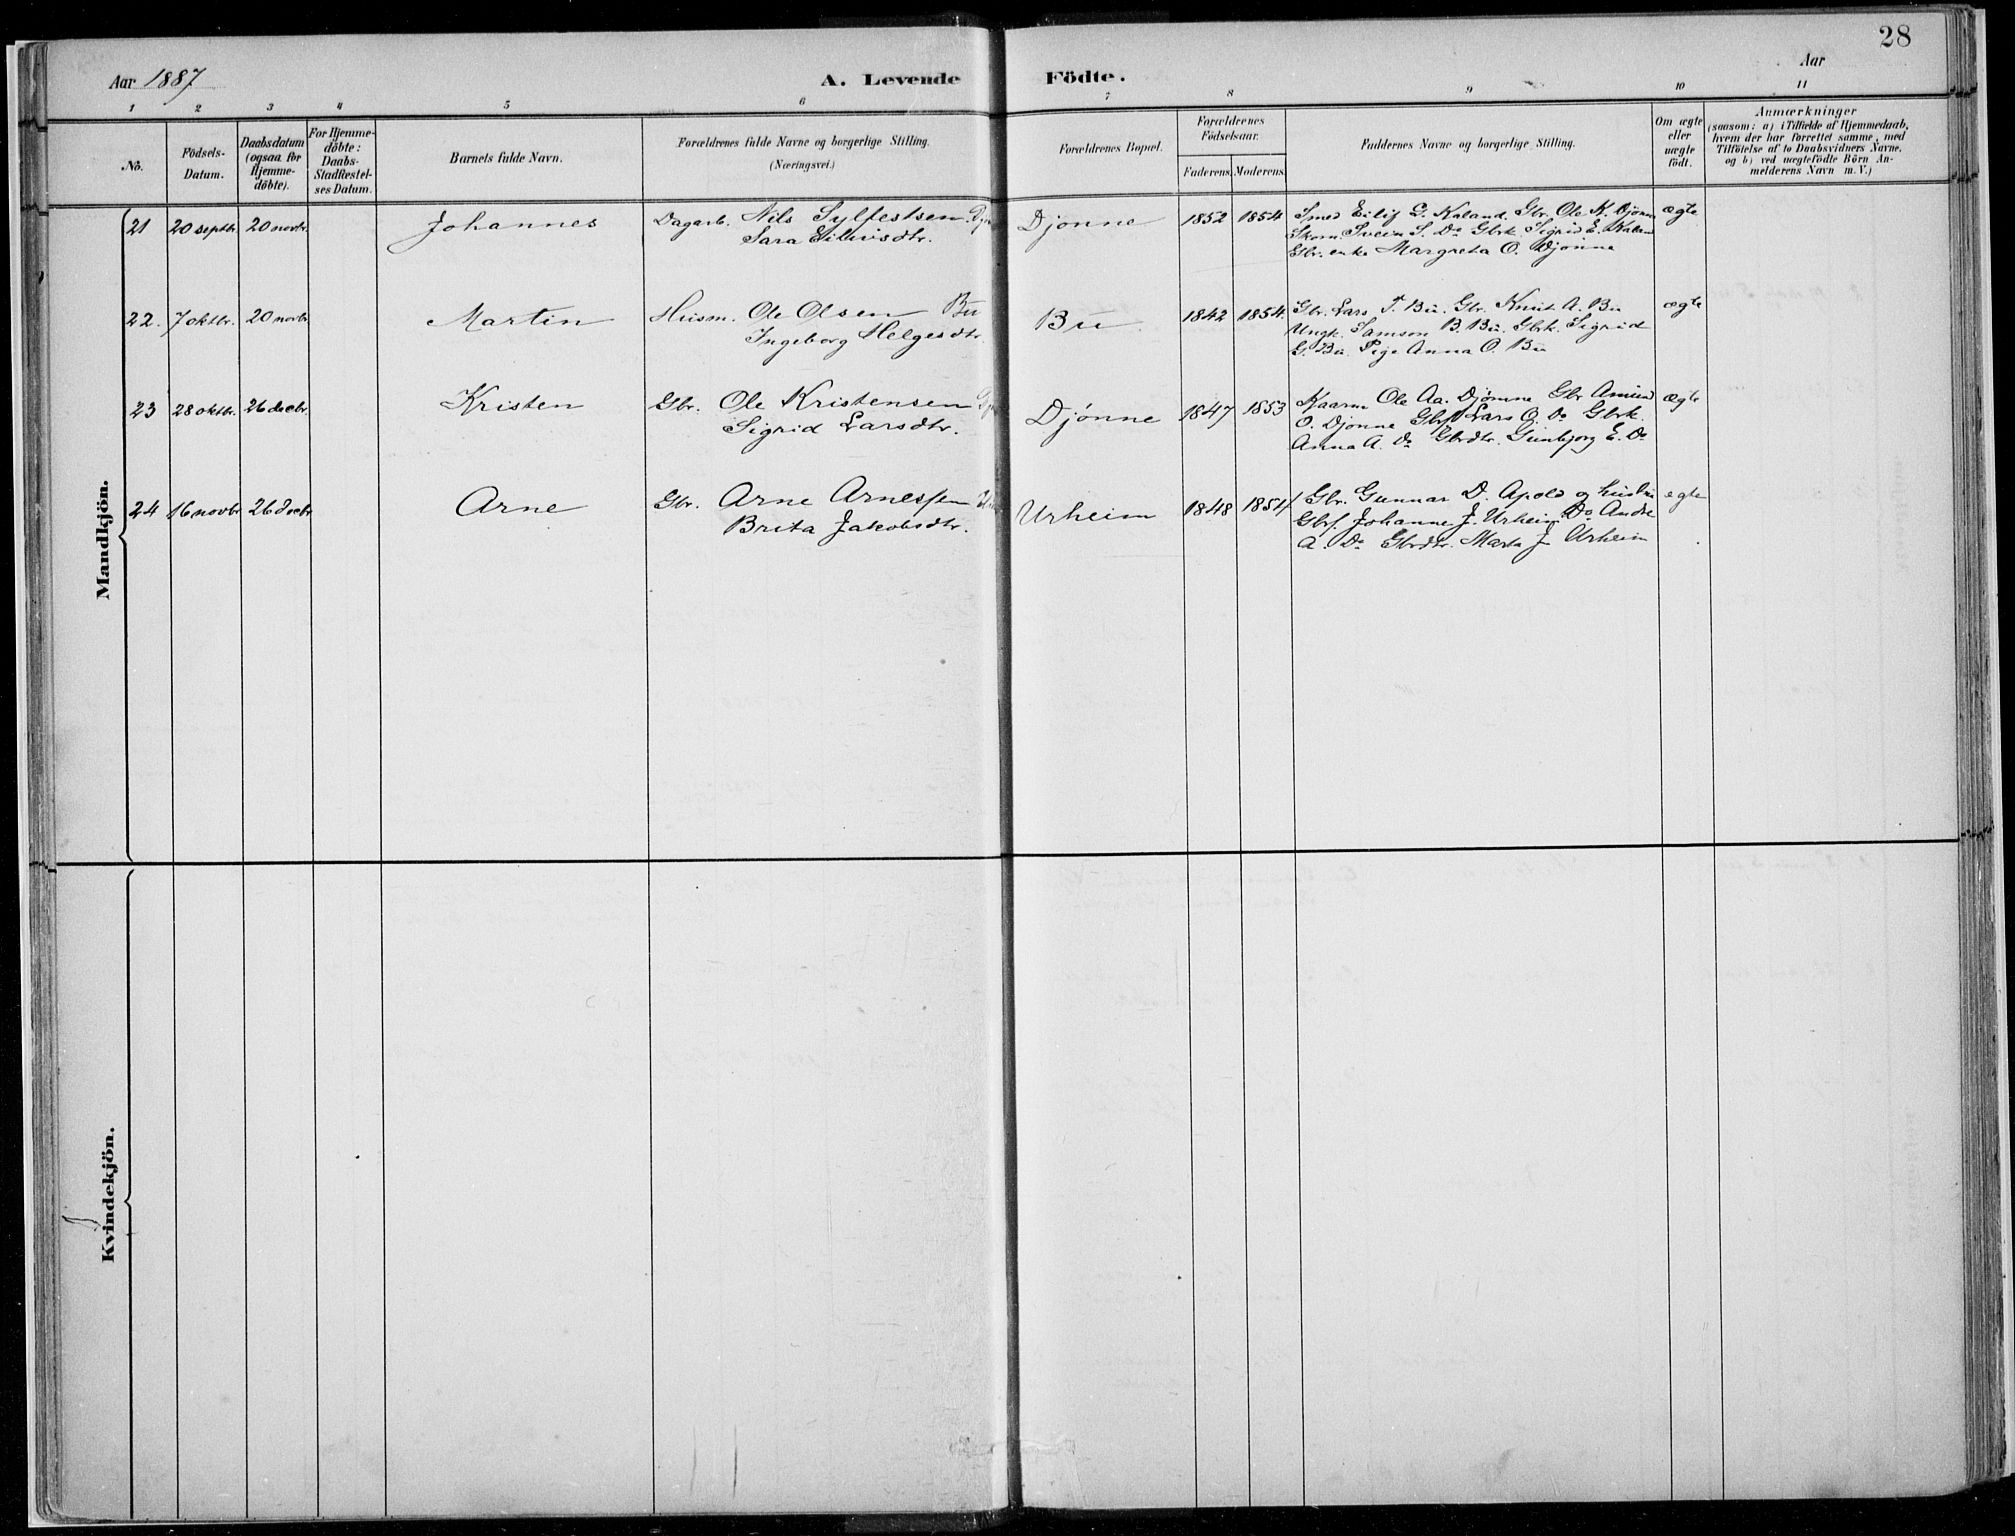 28
Aar 1887
A. Levende Födte.
Aar
1 2 3 4 5 6 7 8 9 10 11
No.
Födsels-Datum.
Daabsdatum (ogsaa for Hjemme-döbte).
For Hjemme-döbte: Daabs-Stadfæstel-ses Datum.
Barnets fulde Navn.
Forældrenes fulde Navne og borgerlige Stilling. (Næringsvei.)
Forældrenes Bopæl.
Forældrenes Födselsaar.
Faderens. Moderens.
Faddernes Navne og borgerlige Stilling.
Om ægte eller uægte födt.
Anmærkninger
(saasom: a) i Tilfælde af Hjemmedaab,
hvem der har forrettet samme, med
Tilföielse af to Daabsvidners Navne,
og b) ved uægtefödte Börn An-
melderens Navn m. V.)
Mandkjön.
21 20 septbr. 20 novbr. Johannes Dagarb. Nils Sylfestsen Djønne 1852 1854 Smed Eilif L. Kaland. Gbr. Ole K. Djønne ægte
Sara Eilivsdtr. Skom. Svein S. Do Gbrk. Sigrid E. Kaland
Gbr. enke Margreta O. Djønne
22. 7 oktbr. 20 novbr. Martin Husm. Ole Olsen Bu Bu 1842 1854. Gbr. Lars T. Bu. Gbr. Knut A. Bu ægte
Ingeborg Helgesdtr. Ungk. Samson B. Bu. Gbrk. Sigrid
G. Bu. Pige Anna O. Bu
23 28 oktbr. 26 decbr. Kristen Gbr. Ole Kristensen Djønne 1847 1853 Kaarm Ole Aa. Djønne Gbr Amund ægte
Sigrid Larsdtr. O. Djønne Lars O. Do Gbrk.
Anna A. Do Gbrdtr. Gunbjorg E. Do
24 16 novbr 26 decbr Arne Gbr. Arne Arnessen Urheim 1848 1854 Gbr. Gunnar D. Apold og hustru egte
Brita Jakobsdtr. Gbrf. Johanne J. Urheim Do Andre
A. Do Gbrdtr. Marta J Urheim
Kvindekjön.